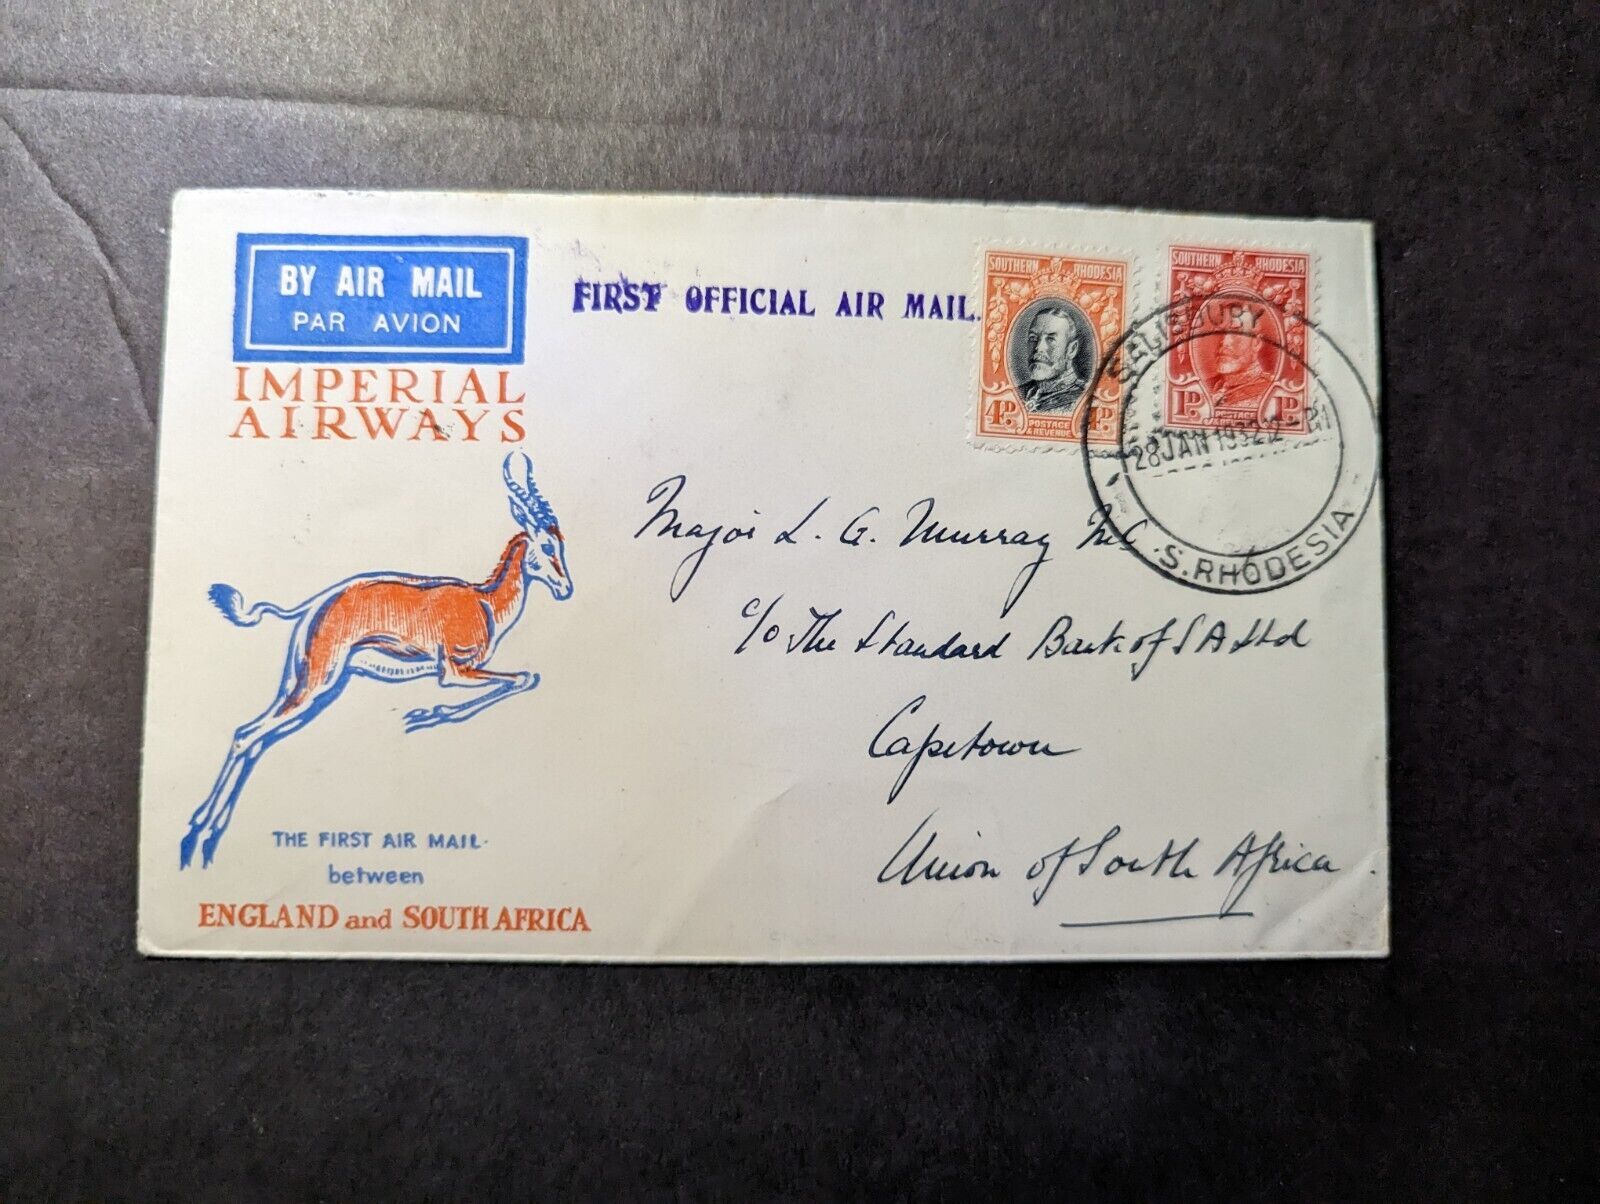 BY AIR MAIL
PAR AVION
IMPERIAL
AIRWAYS
FIRST OFFICIAL AIR MAIL.
SOUTHERN RHODESIA
4D. 4D.
POSTAGE
& REVENUE
SOUTHERN RHODESIA
1D. 1D.
POSTAGE
SALISBURY
28 JAN 1932
S. RHODESIA
Major L. G. Murray M.C.
c/o The Standard Bank of S A Ltd
Capetown
Union of South Africa.
THE FIRST AIR MAIL
between
ENGLAND and SOUTH AFRICA